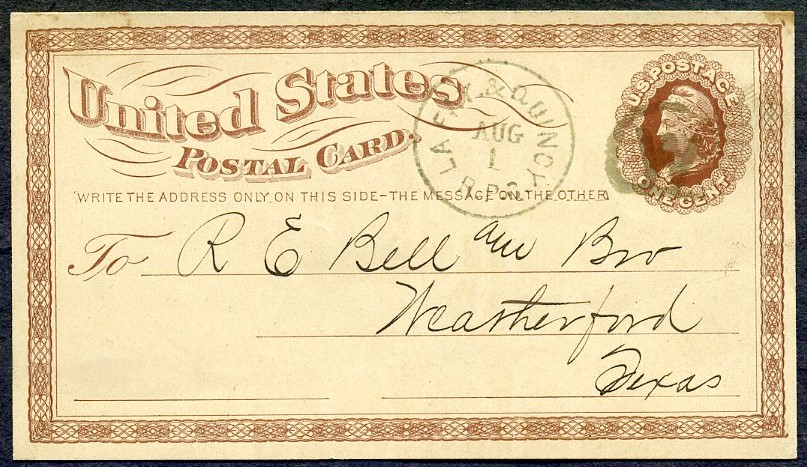 United States
POSTAL CARD.
U.S. POSTAGE
ONE CENT
LAF'Y. & QUINCY R.P.O.
AUG
1
WRITE THE ADDRESS ONLY ON THIS SIDE–THE MESSAGE ON THE OTHER
To R E Bell and Bro
Weatherford
Texas